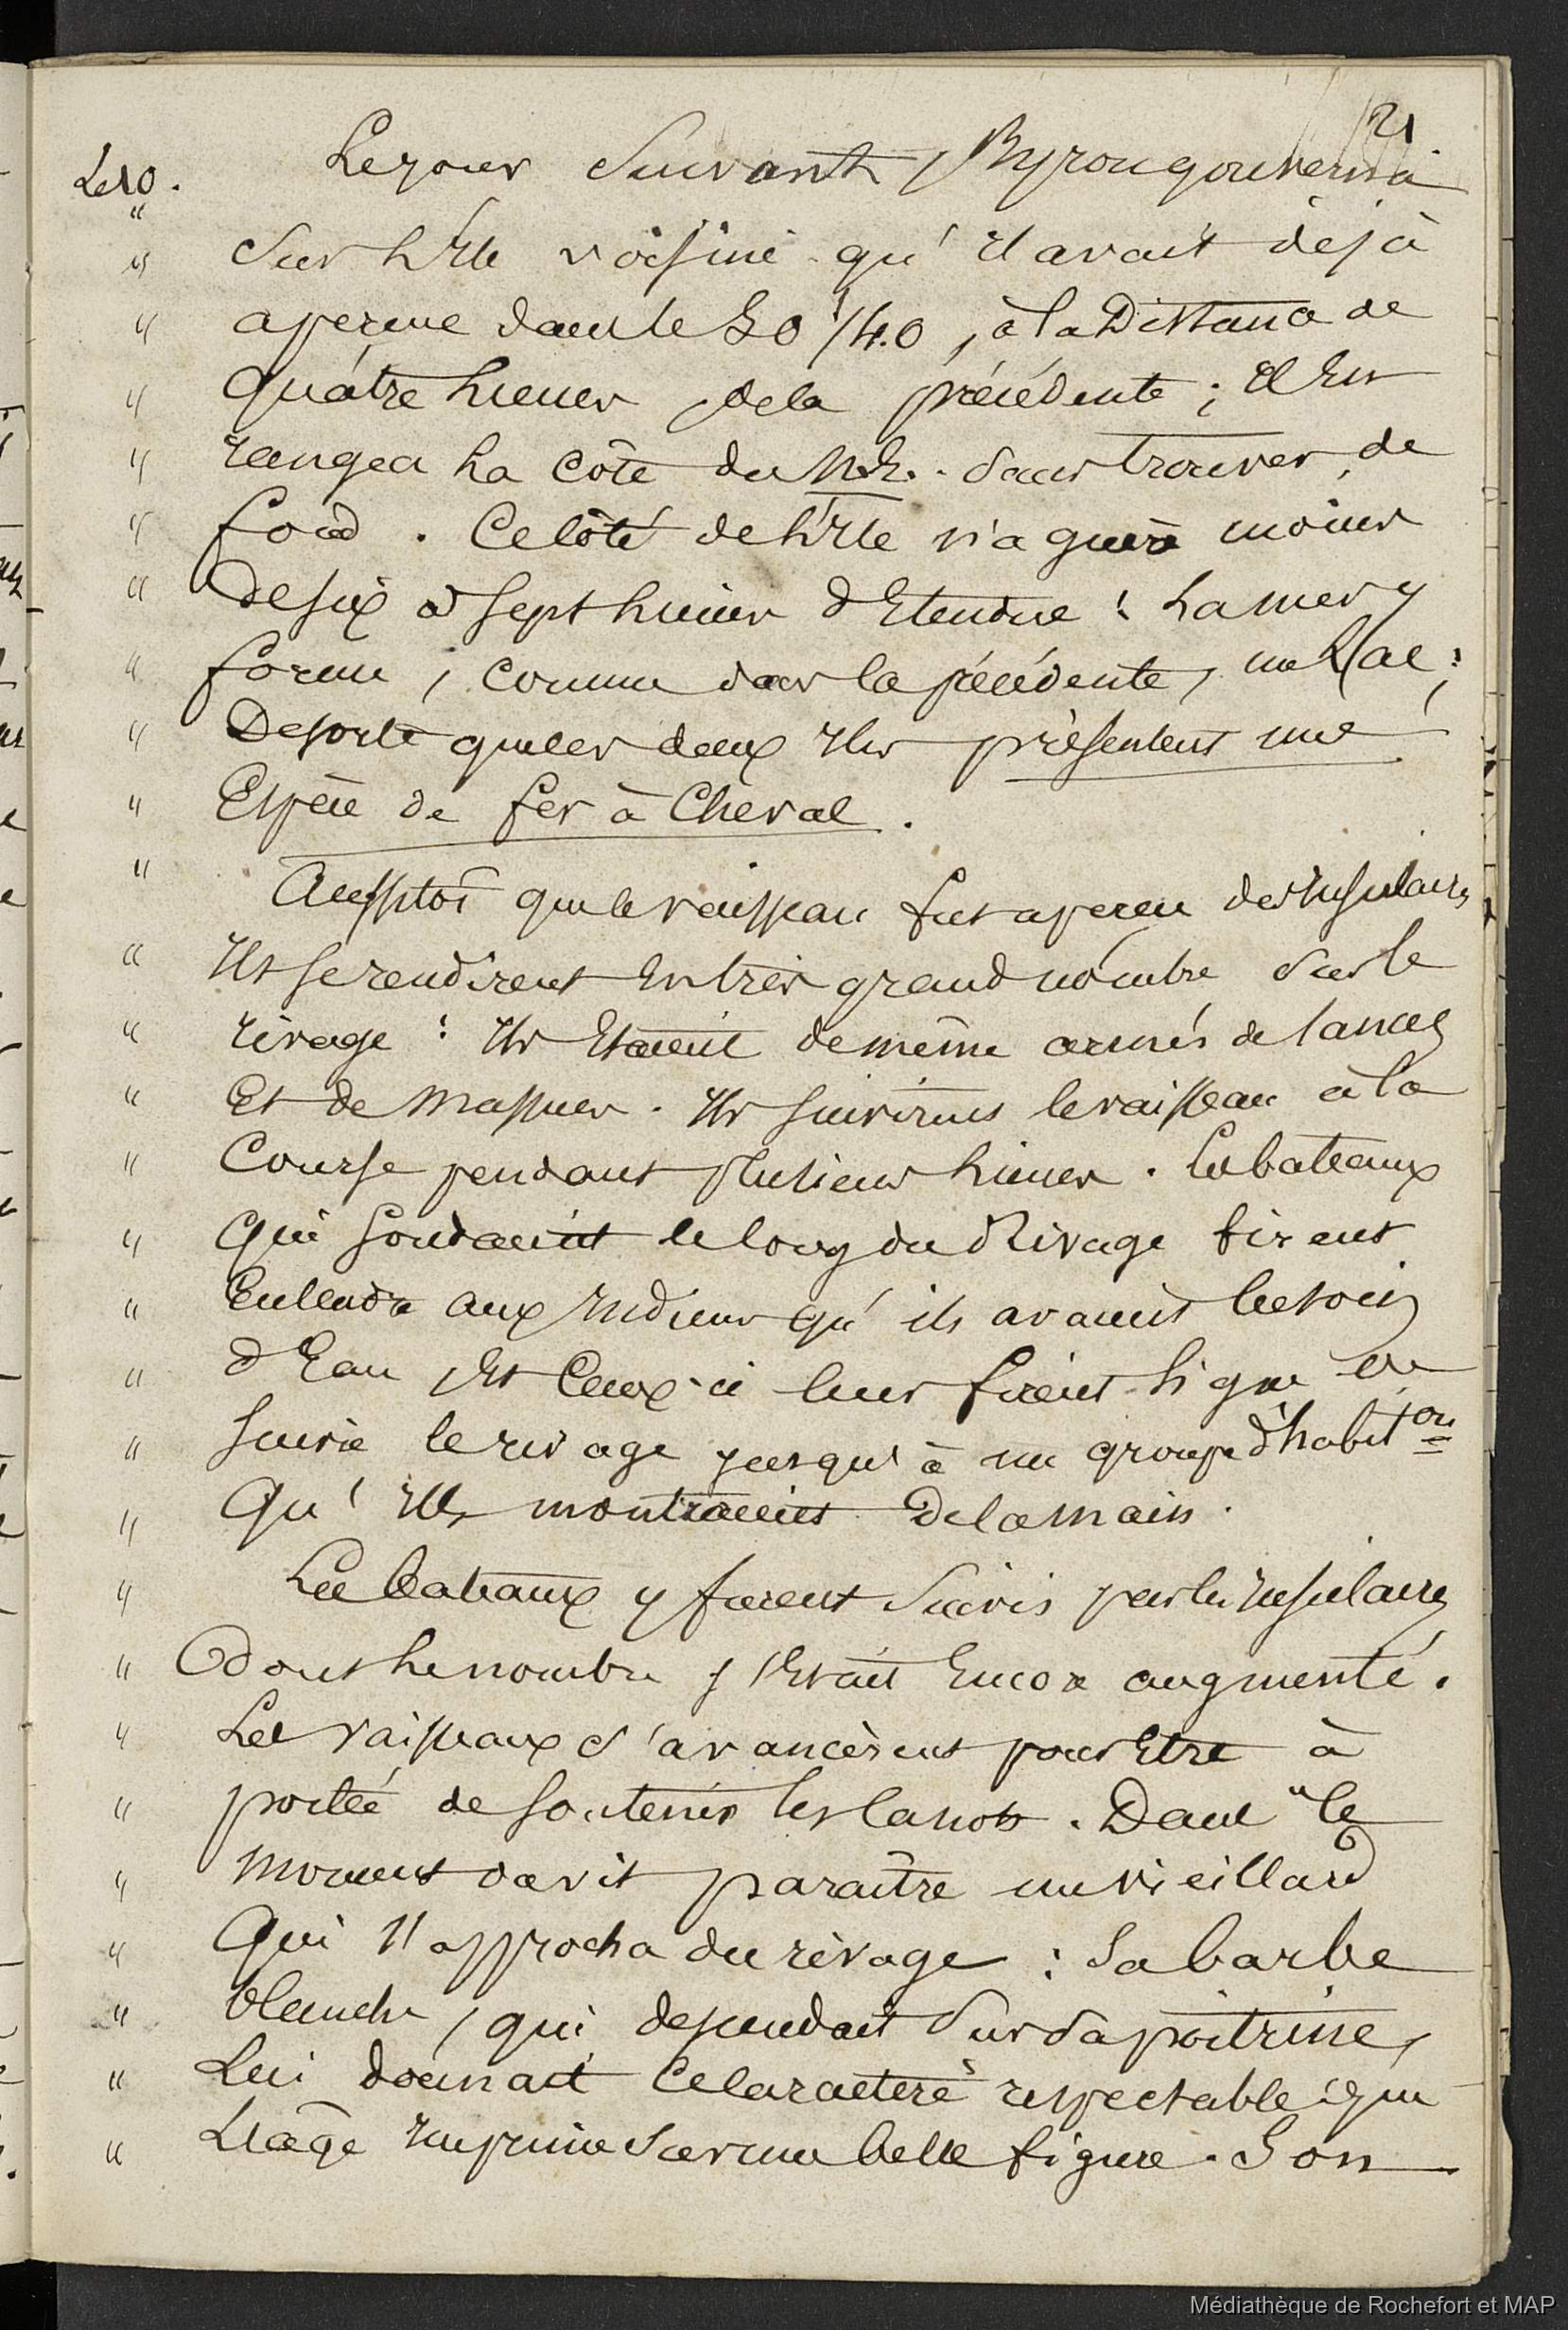 21
Le 10. Le jour suivant, Byron gouverna
" sur l'Ile voisine qu'il avait déjà
" aperçue dans le SO 1/4 O, à la Distance de
" Quatre lieues, de la précédente ; Il En
" rangea La Côte du N.E. sans trouver de
" fond. Ce Côté de l'Ile n'a guère moins
" De six à sept lieues d'Etendue : La mer y
" forme, comme dans la précédente, un Lac ;
" De sorte que les deux Iles présentent une
" Espèce de fer à Cheval.
" Aussitôt que le vaisseau fut aperçu des Insulaires
" Ils se rendirent En très grand nombre sur le
" rivage : Ils Etaient de même armés de lances
" Et de Massues. Ils suivirent le vaisseau à la
" Course pendant plusieurs lieues. Les bateaux
" Qui sondaient le long du Rivage firent
" Entendre aux Indiens qu'ils avaient besoin
" d'Eau, Et Ceux-ci leur firent signe de
" suivre le rivage jusqu'à un groupe d'habit.on
" Qu'Ils montraient De la main.
" Les bateaux y furent suivis par les Insulaires
" Dont Le nombre s'était Encore augmenté.
" Les vaisseaux s'avancèrent pour Etre à
" portée de soutenir les canots. Dans le
" Moment on vit paraître un vieillard
" Qui s'approcha du rivage : Sa barbe
" blanche, qui descendait sur sa poitrine,
" Lui donnait Ce Caractère respectable que
" L'âge Imprime sur une belle figure. Son
Médiathèque de Rochefort et MAP